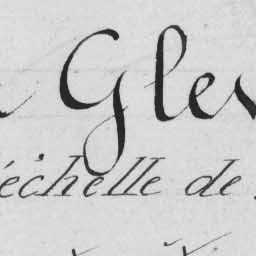 Gle
échelle de